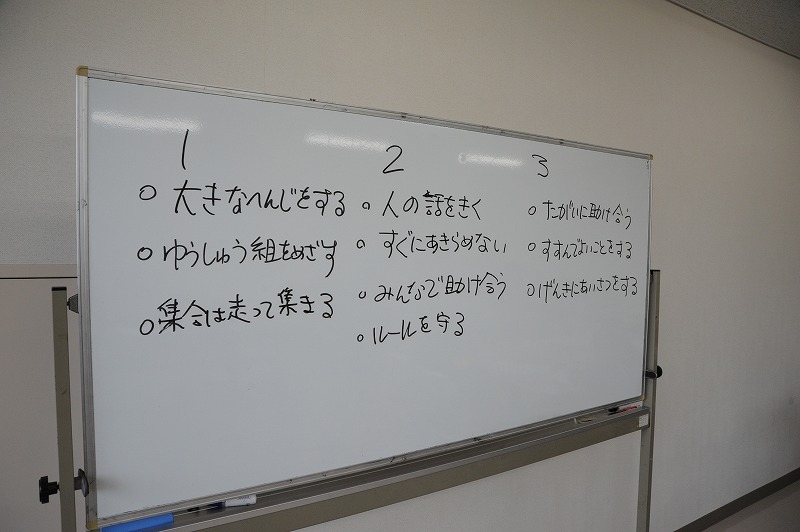 1
○ 大きなへんじをする
○ ゆうしゅう組をめざす
○ 集合は走って集まる
2
○ 人の話をきく
○ すぐにあきらめない
○ みんなで助け合う
○ ルールを守る
3
○ たがいに助け合う
○ すすんでよいことをする
○ げんきにあいさつをする